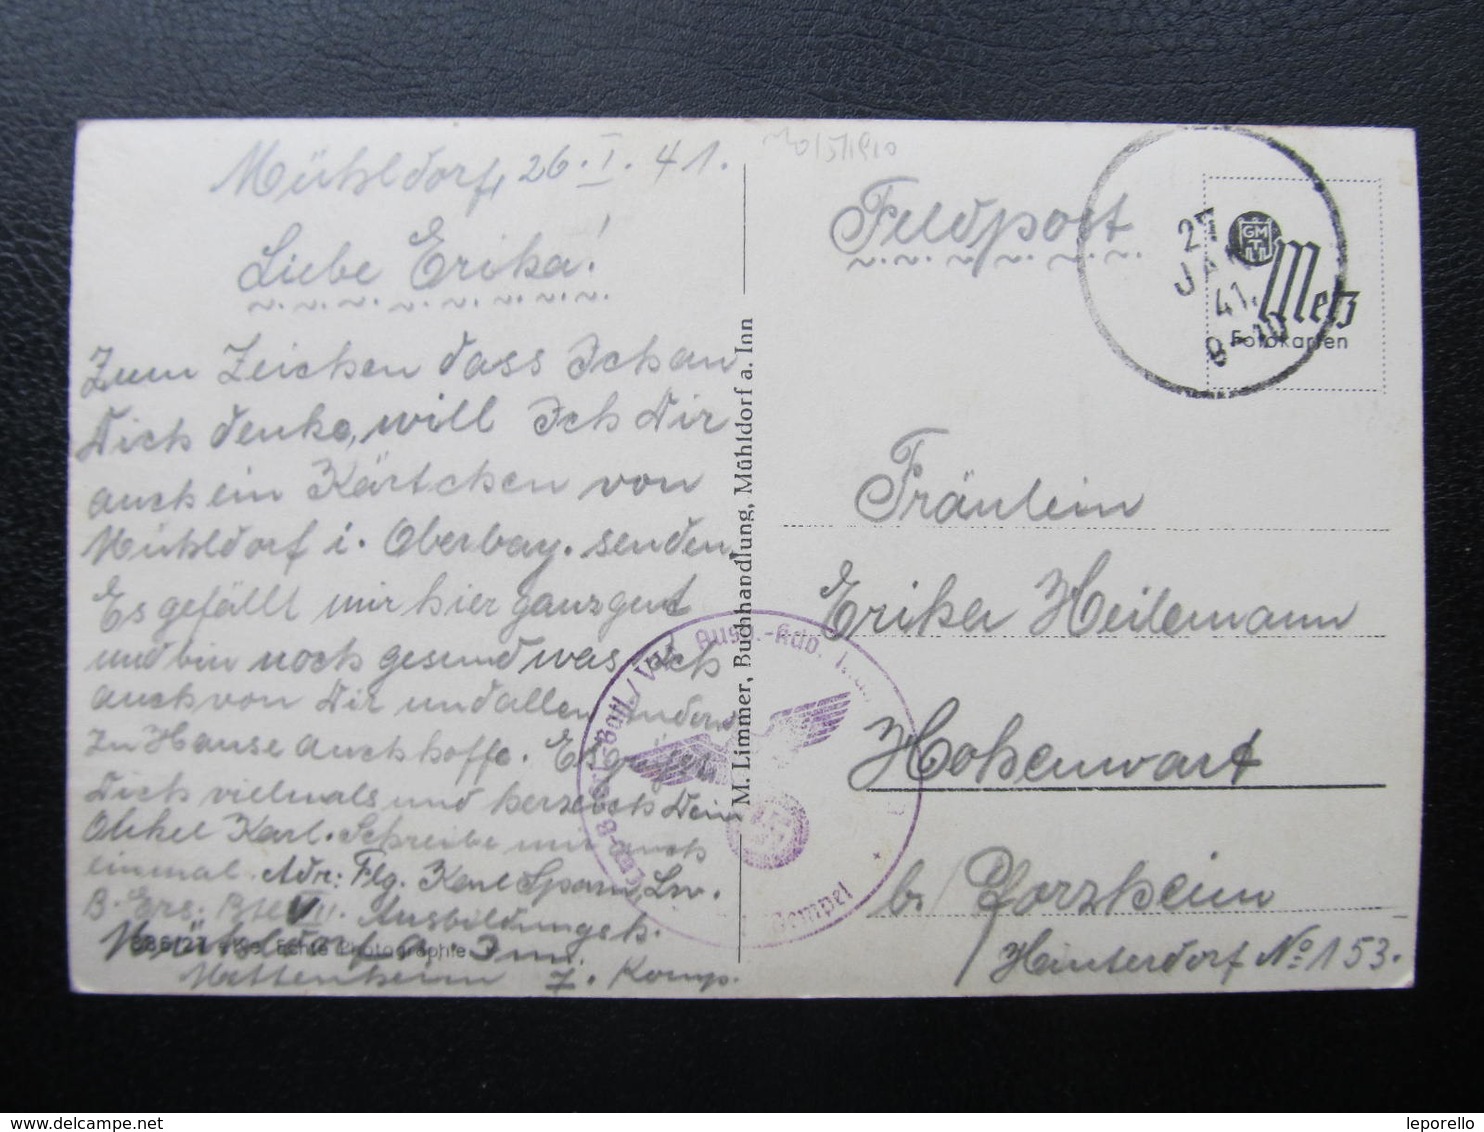 Mühldorf, 26.I.41.
Liebe Erika!
Zum Zeichen dass Ich an
Dich denke, will Ich Dir
auch ein Kärtchen von
Mühldorf i. Oberbay. senden.
Es gefällt mir hier ganz gut
und bin noch gesund was ich
auch von Dir und allen andern
zu Hause auch hoffe. Es grüßt
Dich vielmals und herzlich Dein
Onkel Karl. Schreibe mir auch
einmal. Adr: Flg. Karl Lw.
B. Ers. Btl VII. Ausbildungsk.
Mühldorf a. Inn.
Mettenheim 7. Komp.
Echte Photographie
M. Limmer, Buchhandlung, Mühldorf a. Inn
Feldpost
27
JAN
41.
9-10
GM
Metz
Fotokarten
Fräulein
Erika Heilemann
Hohenwart
b. Pforzheim
Hinterdorf No 153.
leporello